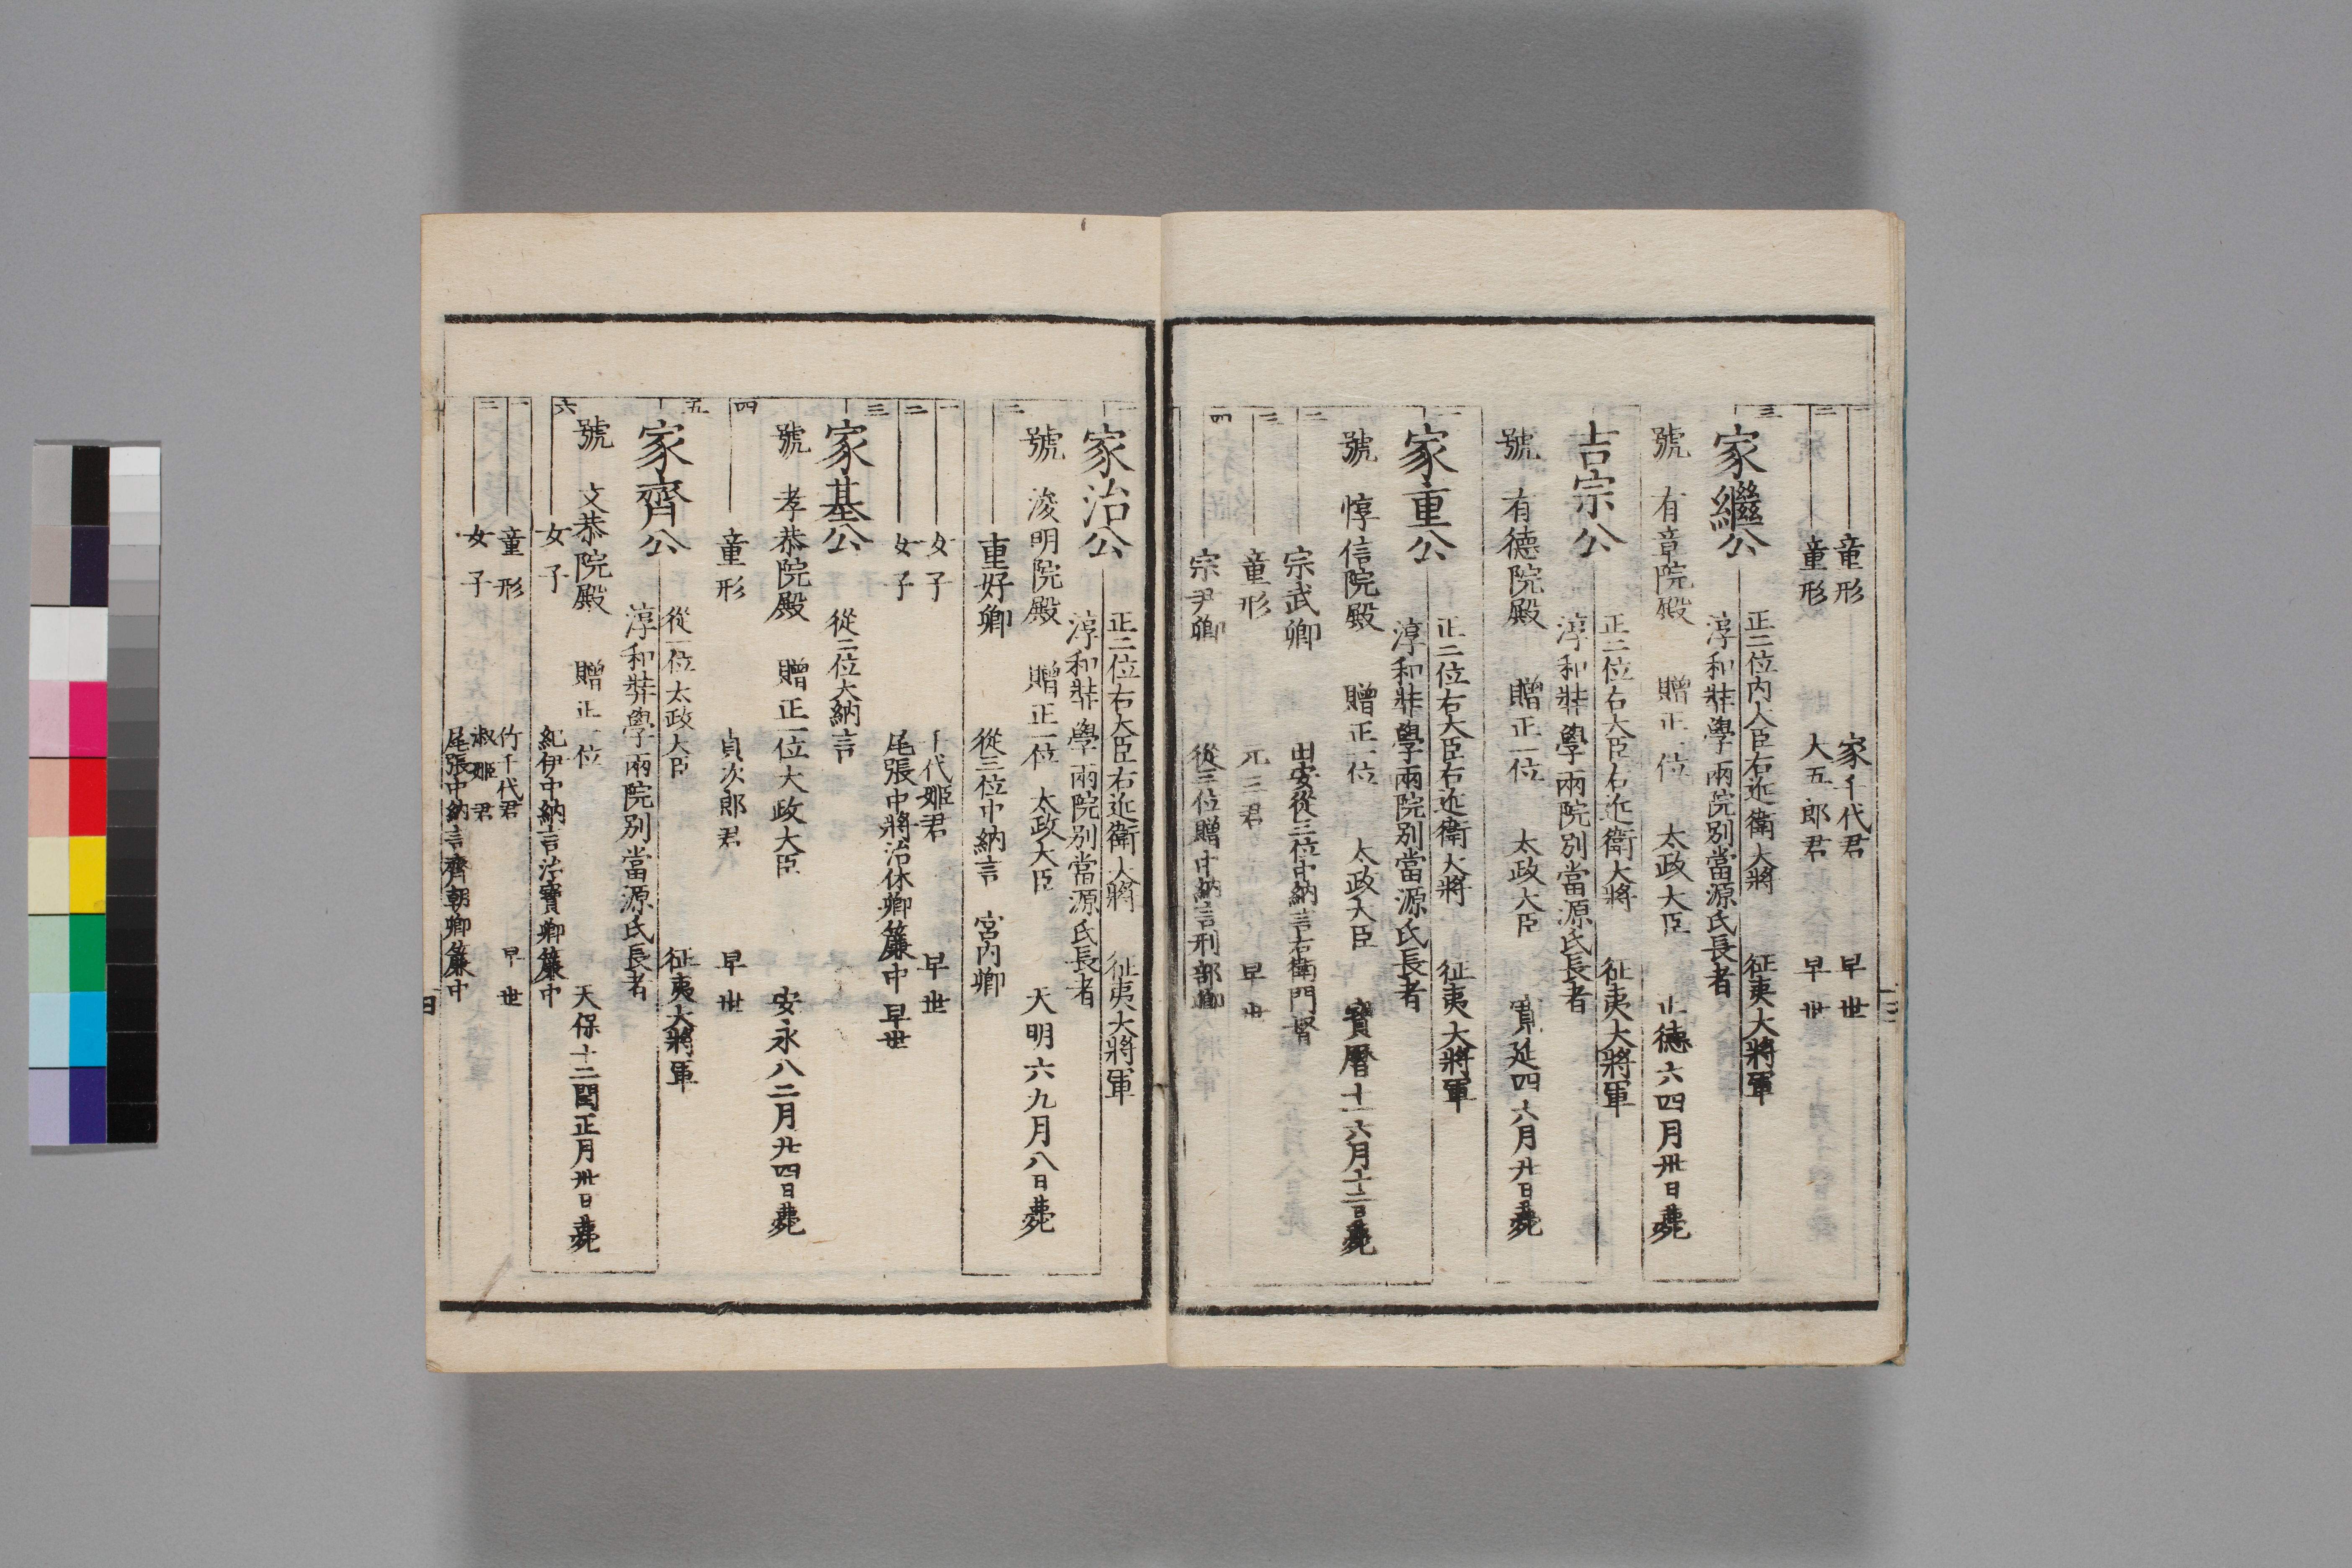 一
童形 家千代君 早世
二
童形 大五郎君 早世
三
家繼公 正二位内大臣右近衛大將 征夷大將軍
淳和弉學兩院別當源氏長者
號 有章院殿 贈正一位 太政大臣 正德六四月卅日薨
吉宗公 正二位右大臣右近衛大將 征夷大將軍
淳和弉學兩院別當源氏長者
號 有德院殿 贈正一位 太政大臣 寛延四六月廿日薨
一
家重公 正二位右大臣右近衛大將 征夷大將軍
淳和弉學兩院別當源氏長者
號 惇信院殿 贈正一位 太政大臣 寳暦十一六月十二日薨
二
宗武卿 田安從三位中納言右衛門督
三
童形 元三君 早世
四
宗尹卿 從三位贈中納言刑部卿
一
家治公 正二位右大臣右近衛大將 征夷大將軍
淳和弉學兩院別當源氏長者
號 浚明院殿 贈正一位 太政大臣 天明六九月八日薨
二
重好卿 從三位中納言 宮内卿
一
女子 千代姫君 早世
二
女子 尾張中將治休卿簾中 早世
三
家基公 從二位大納言
號 孝恭院殿 贈正一位大政大臣 安永八二月廿四日薨
四
童形 貞次郎君 早世
五
家齊公 從一位太政大臣 征夷大將軍
淳和弉學兩院別當源氏長者
號 文恭院殿 贈正一位 天保十二閏正月卅日薨
六
女子 紀伊中納言治寳卿簾中
一
童形 竹千代君 早世
二
女子 淑姫君
尾張中納言齊朝卿簾中